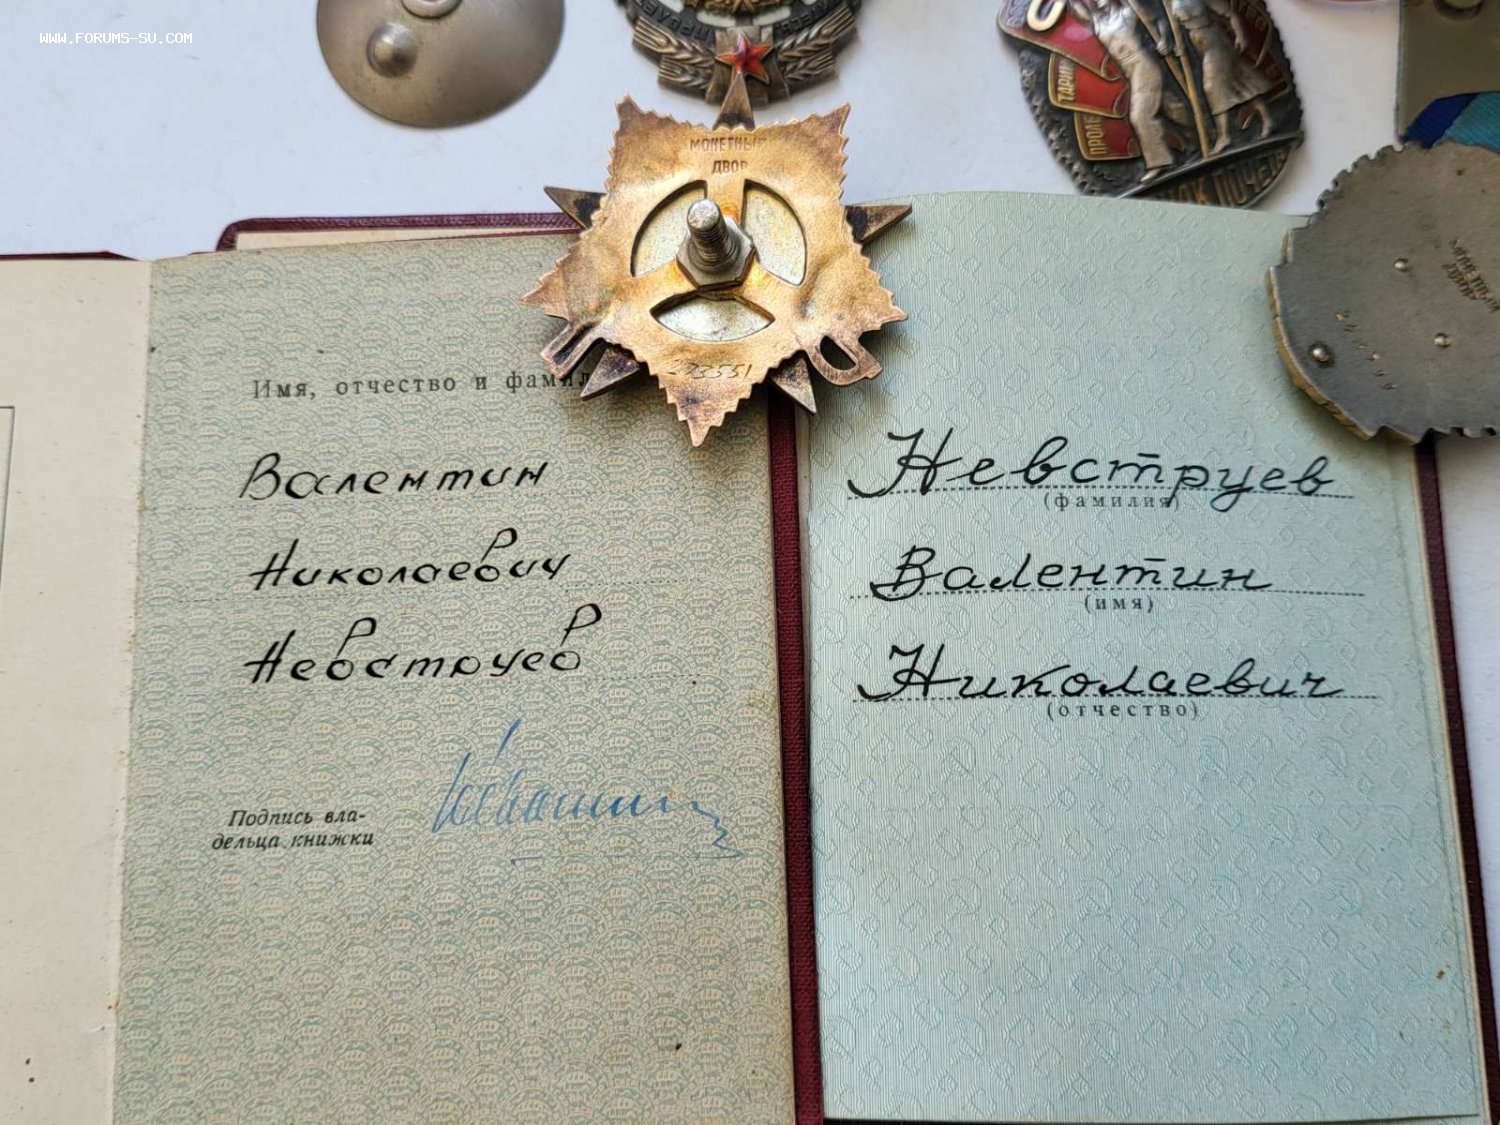 WWW.FORUMS-SU.COM
МОНЕТНЫЙ
ДВОР
273551
ЗНАК ПОЧЕТА
МОНЕТНЫЙ
ДВОР
Имя, отчество и фамил
Валентин
Николаевич
Невструев
Подпись вла-
дельца книжки
Невструев
(фамилия)
Валентин
(имя)
Николаевич
(отчество)